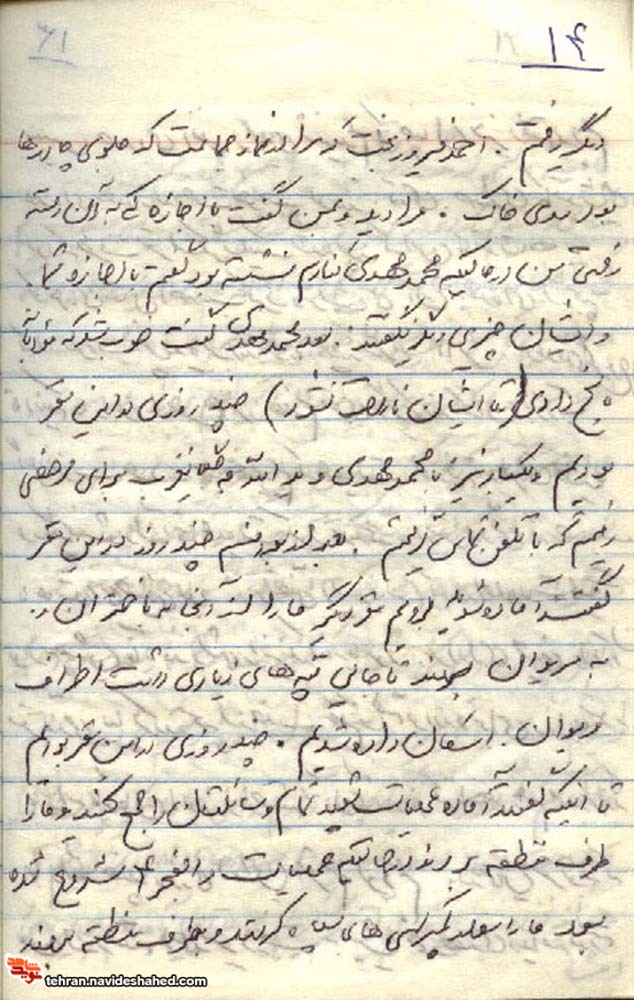 ۱۴
دیگر رفتم. احمد فیروزبخت که سر از نماز جماعت که جلوی چادرها
بود روی خاک. مرا دید و بمن گفت با اجازه کی به آن دسته
رفتی من در حالیکه محمدمهدی کنارم نشسته بود گفتم با اجازه شما.
و ایشان چیزی دیگر نگفتند. بعد محمدمهدی گفت خوب شد که جواب
دادی (تا ایشان ناراحت نشود) چند روزی در این مقر
بودیم و یکبار نیز با محمدمهدی و به مرخصی
رفتیم که با تلفن تماس گرفتیم. بعد از چند روز در این مقر
گفتند آماده شوید برویم مقر دیگر ما را از آنجا به باختران و.
به مریوان بردند تا جائی تپه های زیادی داشت اطراف
مریوان. اسکان داده شدیم. چند روزی در این مقر بودیم
تا اینکه گفتند آماده عملیات شوید تمام وسائلتان را جمع کنید و ما را
طرف منطقه بردند در حالیکه عملیات والفجر ۴ شروع شده
بود ما را سوار کمپرسی های سپاه کردند و بطرف منطقه بردند
نوید شاهد
tehran.navideshahed.com